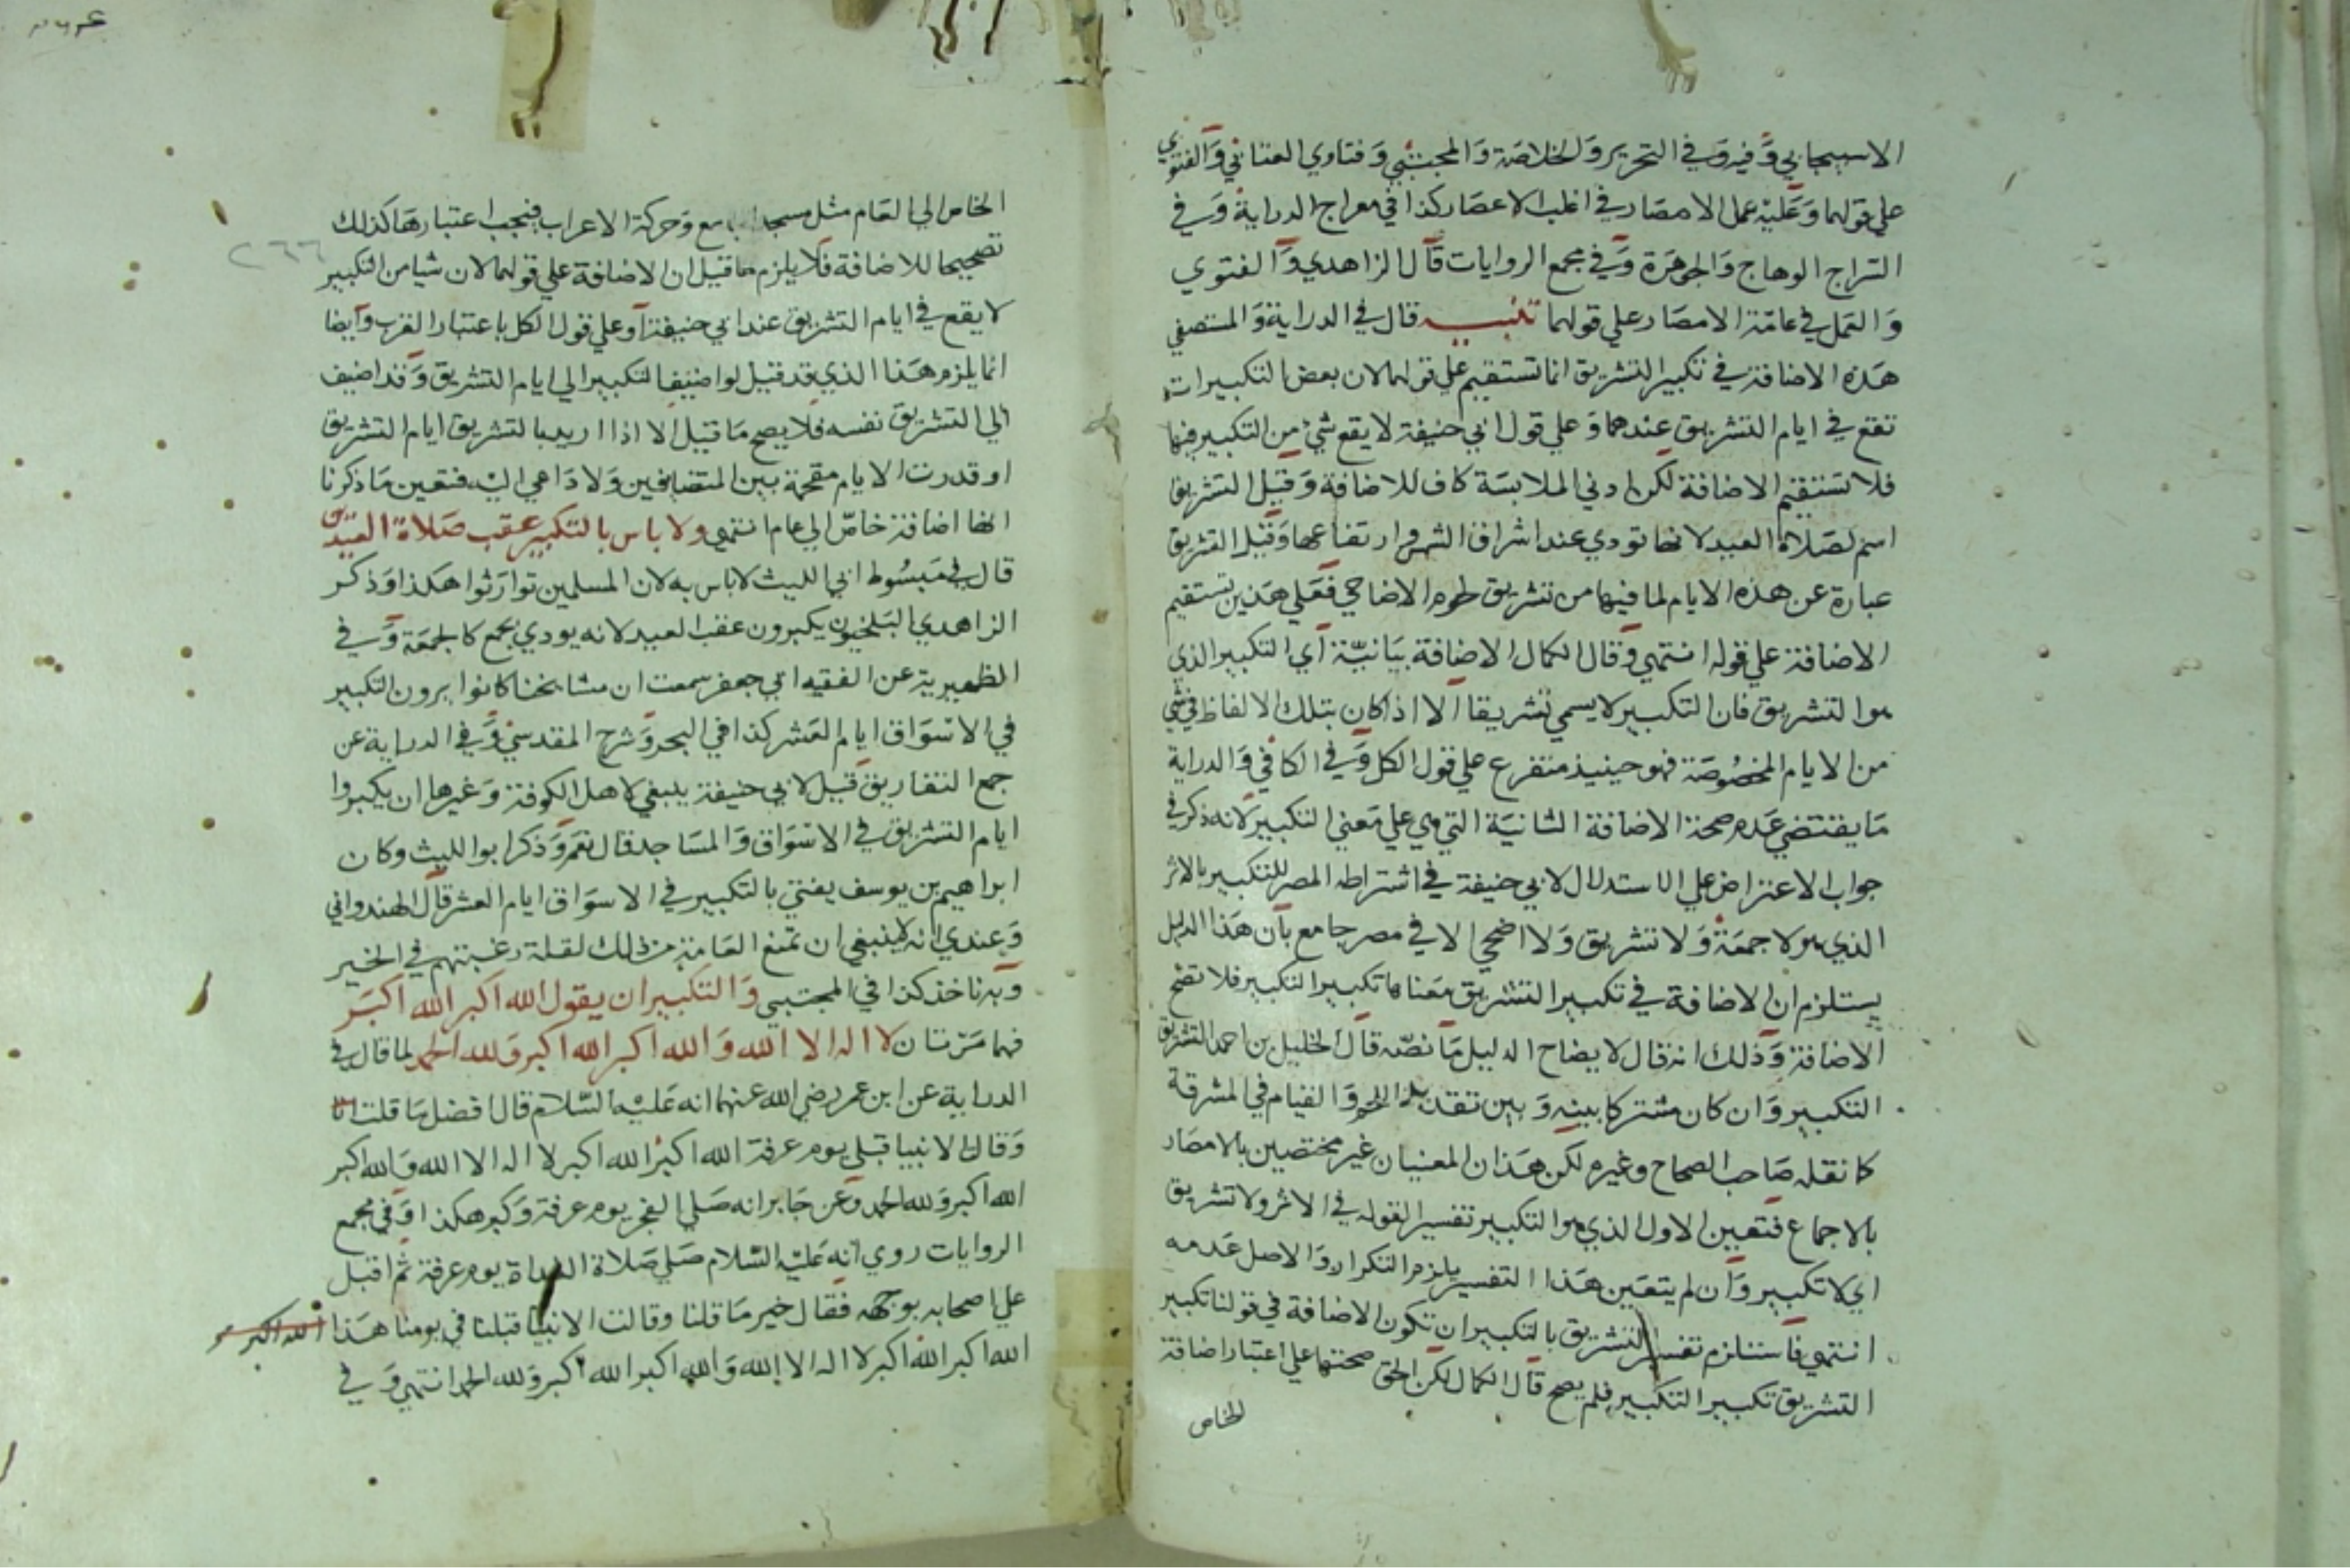 الاسبيجابي وفيه وفي التحرير والخلاصة والمجتبي وفتاوي العتابي والفتوي
علي قولهما وعليه عمل الامصار في اغلب الاعصار كذا في معراج الدراية وفي
السراج الوهاج والجوهرة وفي مجمع الروايات قال الزاهدي والفتوي
والعمل في عامة الامصار علي قولهما تنبيه قال في الدراية والمستصفي
هذه الاضافة في تكبير التشريق انما تستقيم علي قولهما لان بعض التكبيرات
تقع في ايام التشريق عندهما وعلي قول ابي حنيفة لا يقع شئ من التكبير فيها
فلا تستقيم الاضافة لكن ادني الملابسة كاف للاضافة وقيل التشريق
اسم لصلاة العيد لانها تودي عند اشراق الشمس وارتفاعها وقيل التشريق
عبارة عن هذه الايام لما فيها من تشريق لحوم الاضاحي فعلي هذين تستقيم
الاضافة علي قوله انتهي وقال الكمال الاضافة بيانية اي التكبير الذي
هو التشريق فان التكبير لا يسمي تشريقا الا اذا كان بتلك الالفاظ في شي
من الايام المخصوصة فهو حينيذ متفرع علي قول الكل وفي الكافي والدراية
ما يقتضي عدم صحة الاضافة الثانية التي هي علي معني التكبير لانه ذكر في
جواب الاعتراض علي الاستدلال لابي حنيفة في اشتراطه المصر للتكبير بالاثر
الذي هو لا جمعة ولا تشريق ولا اضحي الا في مصر جامع بان هذا الدليل
يستلزم ان الاضافة في تكبير التشريق معناها تكبير التكبير فلا تصح
الاضافة وذلك انه قال لايضاح الدليل ما نصه قال الخليل بن احمد التشريق
التكبير وان كان مشتركا بينه وبين تقديد اللحم والقيام في المشرقة
كا نقله صاحب الصحاح وغيره لكن هذان المعنيان غير مختصين بالامصار
بالاجماع فتعين الاول الذي هو التكبير تفسيرا لقوله في الاثر ولا تشريق
اي لا تكبير وان لم يتعين هذا التفسير يلزم التكرار والاصل عدمه
انتهي فاستلزم تفسير التشريق بالتكبير ان تكون الاضافة في قولنا تكبير
التشريق تكبير التكبير فلم يصح قال الكمال لكن الحق صحتها علي اعتبار اضافة
الخاص
الخاص الي العام مثل مسجد الجامع وحركة الاعراب فيجب اعتبارها كذلك
٢٦٦
تصحيحا للاضافة فلا يلزم ما قيل ان الاضافة علي قولهما لان شيا من التكبير
لا يقع في ايام التشريق عند ابي حنيفة او علي قول الكل باعتبار القرب وايضا
انما يلزم هذا الذي قد قيل لو اضيف التكبير الي ايام التشريق وقد اضيف
الي التشريق نفسه فلا يصح ما قيل الا اذا اريد بالتشريق ايام التشريق
او قدرت الايام مقحمة بين المتضايفين ولا داعي اليه فتعين ما ذكرنا
انها اضافة خاص الي عام انتهي ولا باس بالتكبير عقب صلاة العيدين
قال في مبسوط ابي الليث لا باس به لان المسلمين توارثوا هكذا وذكر
الزاهدي البلخيون يكبرون عقب العيد لانه يودي بجمع كالجمعة وفي
الظهيرية عن الفقيه ابي جعفر سمعت ان مشايخنا كانوا يرون التكبير
في الاسواق ايام العشر كذا في البحر وشرح المقدسي وفي الدراية عن
جمع التفاريق قيل لابي حنيفة ينبغي لاهل الكوفة وغيرها ان يكبروا
ايام التشريق في الاسواق والمساجد قال نعم وذكر ابو الليث وكان
ابراهيم بن يوسف يفتي بالتكبير في الاسواق ايام العشر قال الهندواني
وعندي انه لا ينبغي ان تمنع العامة من ذلك لقلة رغبتهم في الخير
وبه ناخذ كذا في المجتبي والتكبير ان يقول الله اكبر الله اكبر
فهما مرتان لا اله الا الله والله اكبر الله اكبر ولله الحمد لما قال في
الدراية عن ابن عمر رضي الله عنهما انه عليه السلام قال افضل ما قلت انا
وقال الانبيا قبلي يوم عرفة الله اكبر الله اكبر لا اله الا الله والله اكبر
الله اكبر ولله الحمد وعن جابر انه صلي الفجر يوم عرفة وكبر هكذا وفي مجمع
الروايات روي انه عليه السلام صلي صلاة الغداة يوم عرفة ثم اقبل
علي اصحابه بوجهه فقال خير ما قلنا وقالت الانبيا قبلنا في يومنا هذا الله اكبر
الله اكبر الله اكبر لا اله الا الله والله اكبر الله اكبر ولله الحمد انتهي وفي